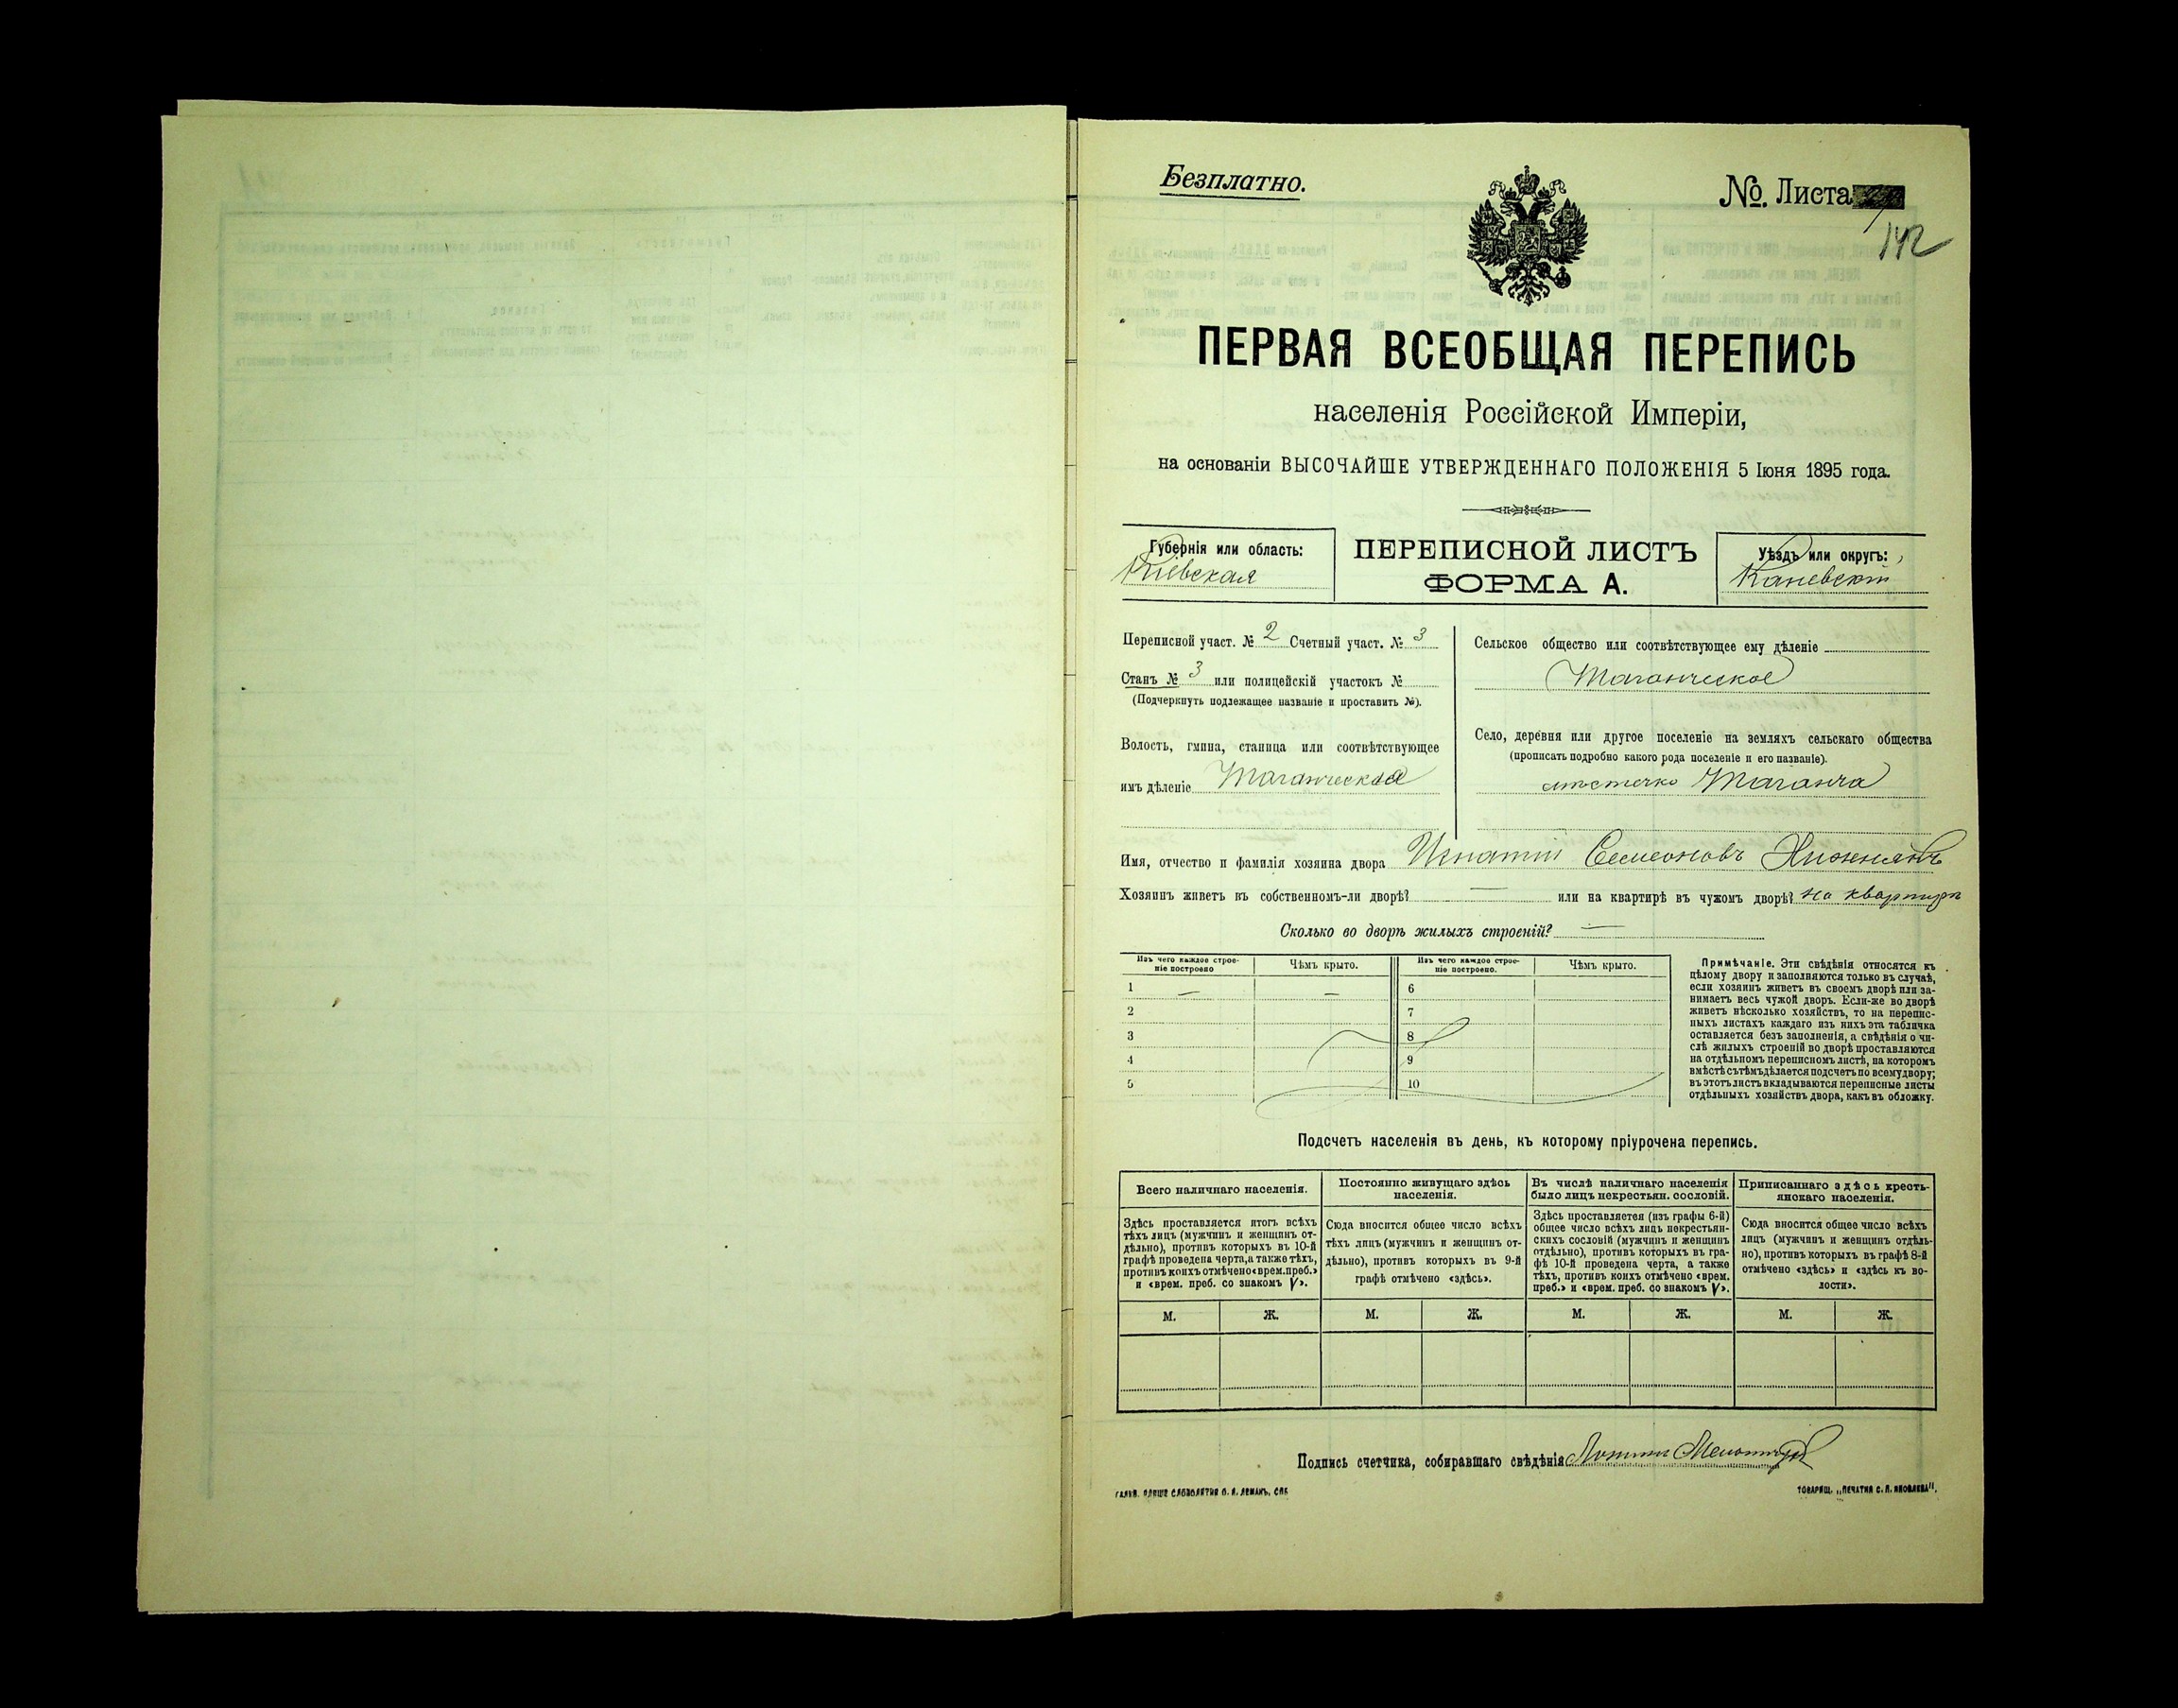 Безплатно.
№. Листа
142
ПЕРВАЯ ВСЕОБЩАЯ ПЕРЕПИСЬ
населенія Россійской Имперіи,
на основаніи ВЫСОЧАЙШЕ УТВЕРЖДЕННАГО ПОЛОЖЕНІЯ 5 Іюня 1895 года.
Губернія или область:
Кіевская
ПЕРЕПИСНОЙ ЛИСТЪ
ФОРМА А.
Уѣздъ или округъ:
Каневскій
Переписной участ. № 2 Счетный участ. № 3
Станъ № 3 или полицейскій участокъ №
(Подчеркнуть подлежащее названіе и проставить №).
Волость, гмина, станица или соотвѣтствующее
имъ дѣленіе Таганческая
Сельское общество или соотвѣтствующее ему дѣленіе
Таганческое
Село, деревня или другое поселеніе на земляхъ сельскаго общества
(прописать подробно какого рода поселеніе и его названіе).
мѣстечко Таганча
Имя, отчество и фамилія хозяина двора Игнатій Семеоновъ Хижнякъ
Хозяинъ живетъ въ собственномъ-ли дворѣ? — или на квартирѣ въ чужомъ дворѣ? на квартирѣ
Сколько во дворѣ жилыхъ строеній? —
Изъ чего каждое строе-
ніе построено
Чѣмъ крыто.
Изъ чего каждое строе-
ніе построено.
Чѣмъ крыто.
1 — —
2
3
4
5
6
7
8
9
10
Примѣчаніе. Эти свѣдѣнія относятся къ
цѣлому двору и заполняются только въ случаѣ,
если хозяинъ живетъ въ своемъ дворѣ или за-
нимаетъ весь чужой дворъ. Если-же во дворѣ
живетъ нѣсколько хозяйствъ, то на перепис-
ныхъ листахъ каждаго изъ нихъ эта табличка
оставляется безъ заполненія, а свѣдѣнія о чи-
слѣ жилыхъ строеній во дворѣ проставляются
на отдѣльномъ переписномъ листѣ, на которомъ
вмѣстѣ съ тѣмъ дѣлается подсчетъ по всему двору;
въ этотъ листъ вкладываются переписные листы
отдѣльныхъ хозяйствъ двора, какъ въ обложку.
Подсчетъ населенія въ день, къ которому пріурочена перепись.
Всего наличнаго населенія.
Здѣсь проставляется итогъ всѣхъ
тѣхъ лицъ (мужчинъ и женщинъ от-
дѣльно), противъ которыхъ въ 10-й
графѣ проведена черта, а также тѣхъ,
противъ коихъ отмѣчено «врем. преб.»
и «врем. преб. со знакомъ V».
Постоянно живущаго здѣсь
населенія.
Сюда вносится общее число всѣхъ
тѣхъ лицъ (мужчинъ и женщинъ от-
дѣльно), противъ которыхъ въ 9-й
графѣ отмѣчено «здѣсь».
Въ числѣ наличнаго населенія
было лицъ некрестьян. сословій.
Здѣсь проставляется (изъ графы 6-й)
общее число всѣхъ лицъ некрестьян-
скихъ сословій (мужчинъ и женщинъ
отдѣльно), противъ которыхъ въ гра-
фѣ 10-й проведена черта, а также
тѣхъ, противъ коихъ отмѣчено «врем.
преб.» и «врем. преб. со знакомъ V».
Приписаннаго здѣсь кресть-
янскаго населенія.
Сюда вносится общее число всѣхъ
лицъ (мужчинъ и женщинъ отдѣль-
но), противъ которыхъ въ графѣ 8-й
отмѣчено «здѣсь» и «здѣсь къ во-
лости».
М. Ж. М. Ж. М. Ж. М. Ж.
Подпись счетчика, собиравшаго свѣдѣнія
ТОВАРИЩ. „ПЕЧАТНЯ С. П. ЯКОВЛЕВА".